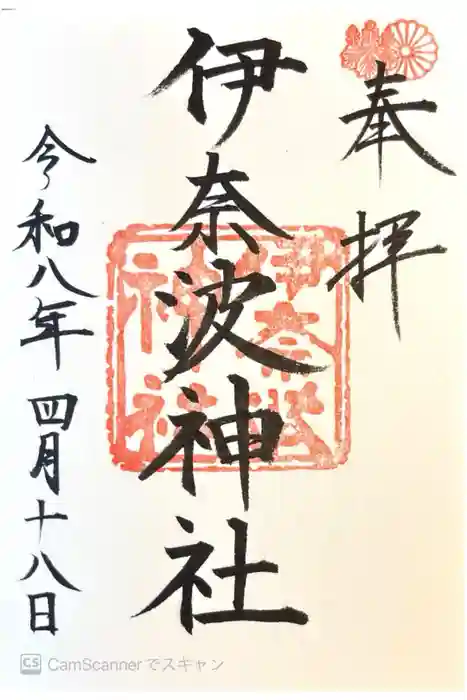 奉拝
伊奈波神社
伊奈波
神社
令和八年 四月十八日
CS CamScannerでスキャン